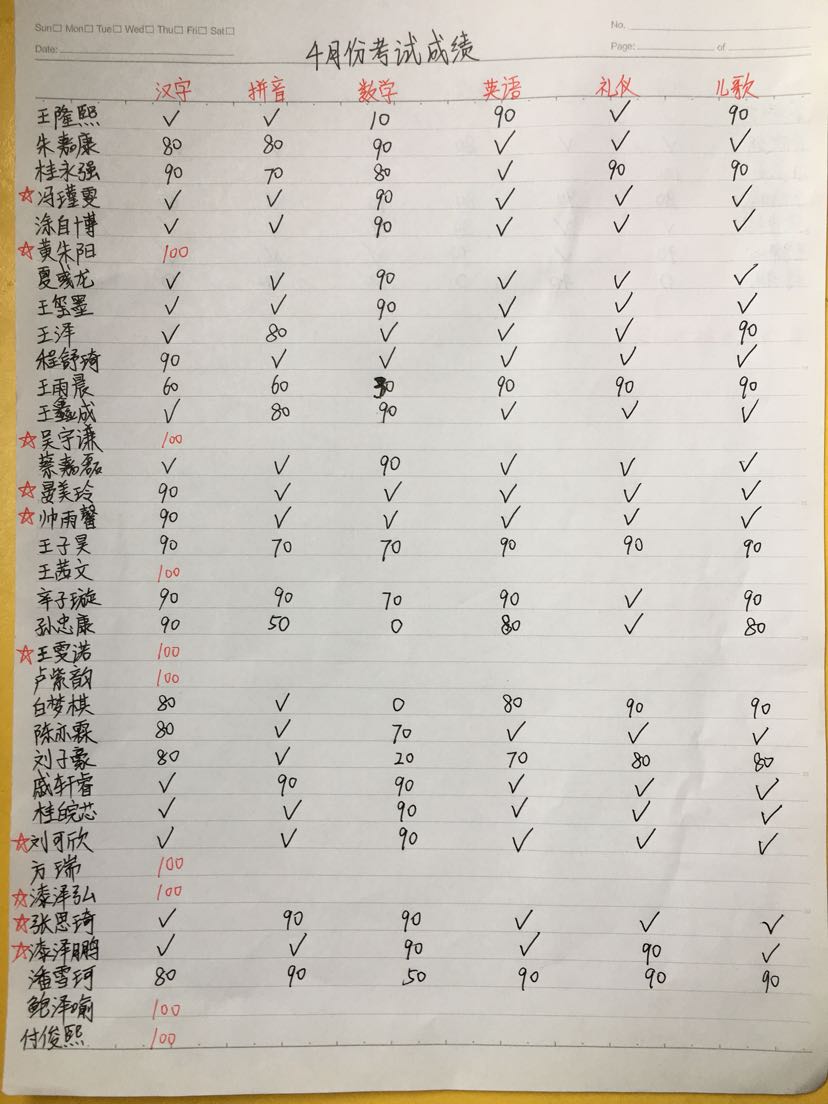 Sun□ Mon□ Tue□ Wed□ Thu□ Fri□ Sat□ No.
Date: Page: of
4月份考试成绩
汉字 拼音 数学 英语 礼仪 儿歌
王隆熙 ✓ ✓ 10 90 ✓ 90
朱嘉康 80 80 90 ✓ ✓ ✓
桂永强 90 70 80 ✓ 90 90
☆冯瑾雯 ✓ ✓ 90 ✓ ✓ ✓
涂自博 ✓ ✓ 90 ✓ ✓ ✓
☆黄朱阳 100
夏彧龙 ✓ ✓ 90 ✓ ✓ ✓
王玺墨 ✓ ✓ 90 ✓ ✓ ✓
王泽 ✓ 80 ✓ ✓ ✓ 90
程舒琦 90 ✓ ✓ ✓ ✓ ✓
王雨晨 60 60 30 90 90 90
王鑫成 ✓ 80 90 ✓ ✓ ✓
☆吴宇谦 100
蔡嘉磊 ✓ ✓ 90 ✓ ✓ ✓
☆晏美玲 90 ✓ ✓ ✓ ✓ ✓
☆帅雨馨 90 ✓ ✓ ✓ ✓ ✓
王子昊 90 70 70 90 90 90
王茜文 100
辛子璇 90 90 70 90 ✓ 90
孙忠康 90 50 0 80 ✓ 80
☆王雯诺 100
卢紫韵 100
白梦棋 80 ✓ 0 80 90 90
陈亦霖 80 ✓ 70 ✓ ✓ ✓
刘子豪 80 ✓ 20 70 80 80
戚轩睿 ✓ 90 90 ✓ ✓ ✓
桂皖芯 ✓ ✓ 90 ✓ ✓ ✓
☆刘可欣 ✓ ✓ 90 ✓ ✓ ✓
方瑞 100
☆漆泽弘 100
☆张思琦 ✓ 90 90 ✓ ✓ ✓
☆漆泽鹏 ✓ ✓ 90 ✓ 90 ✓
潘雪珂 80 90 50 90 90 90
鲍泽喻 100
付俊熙 100